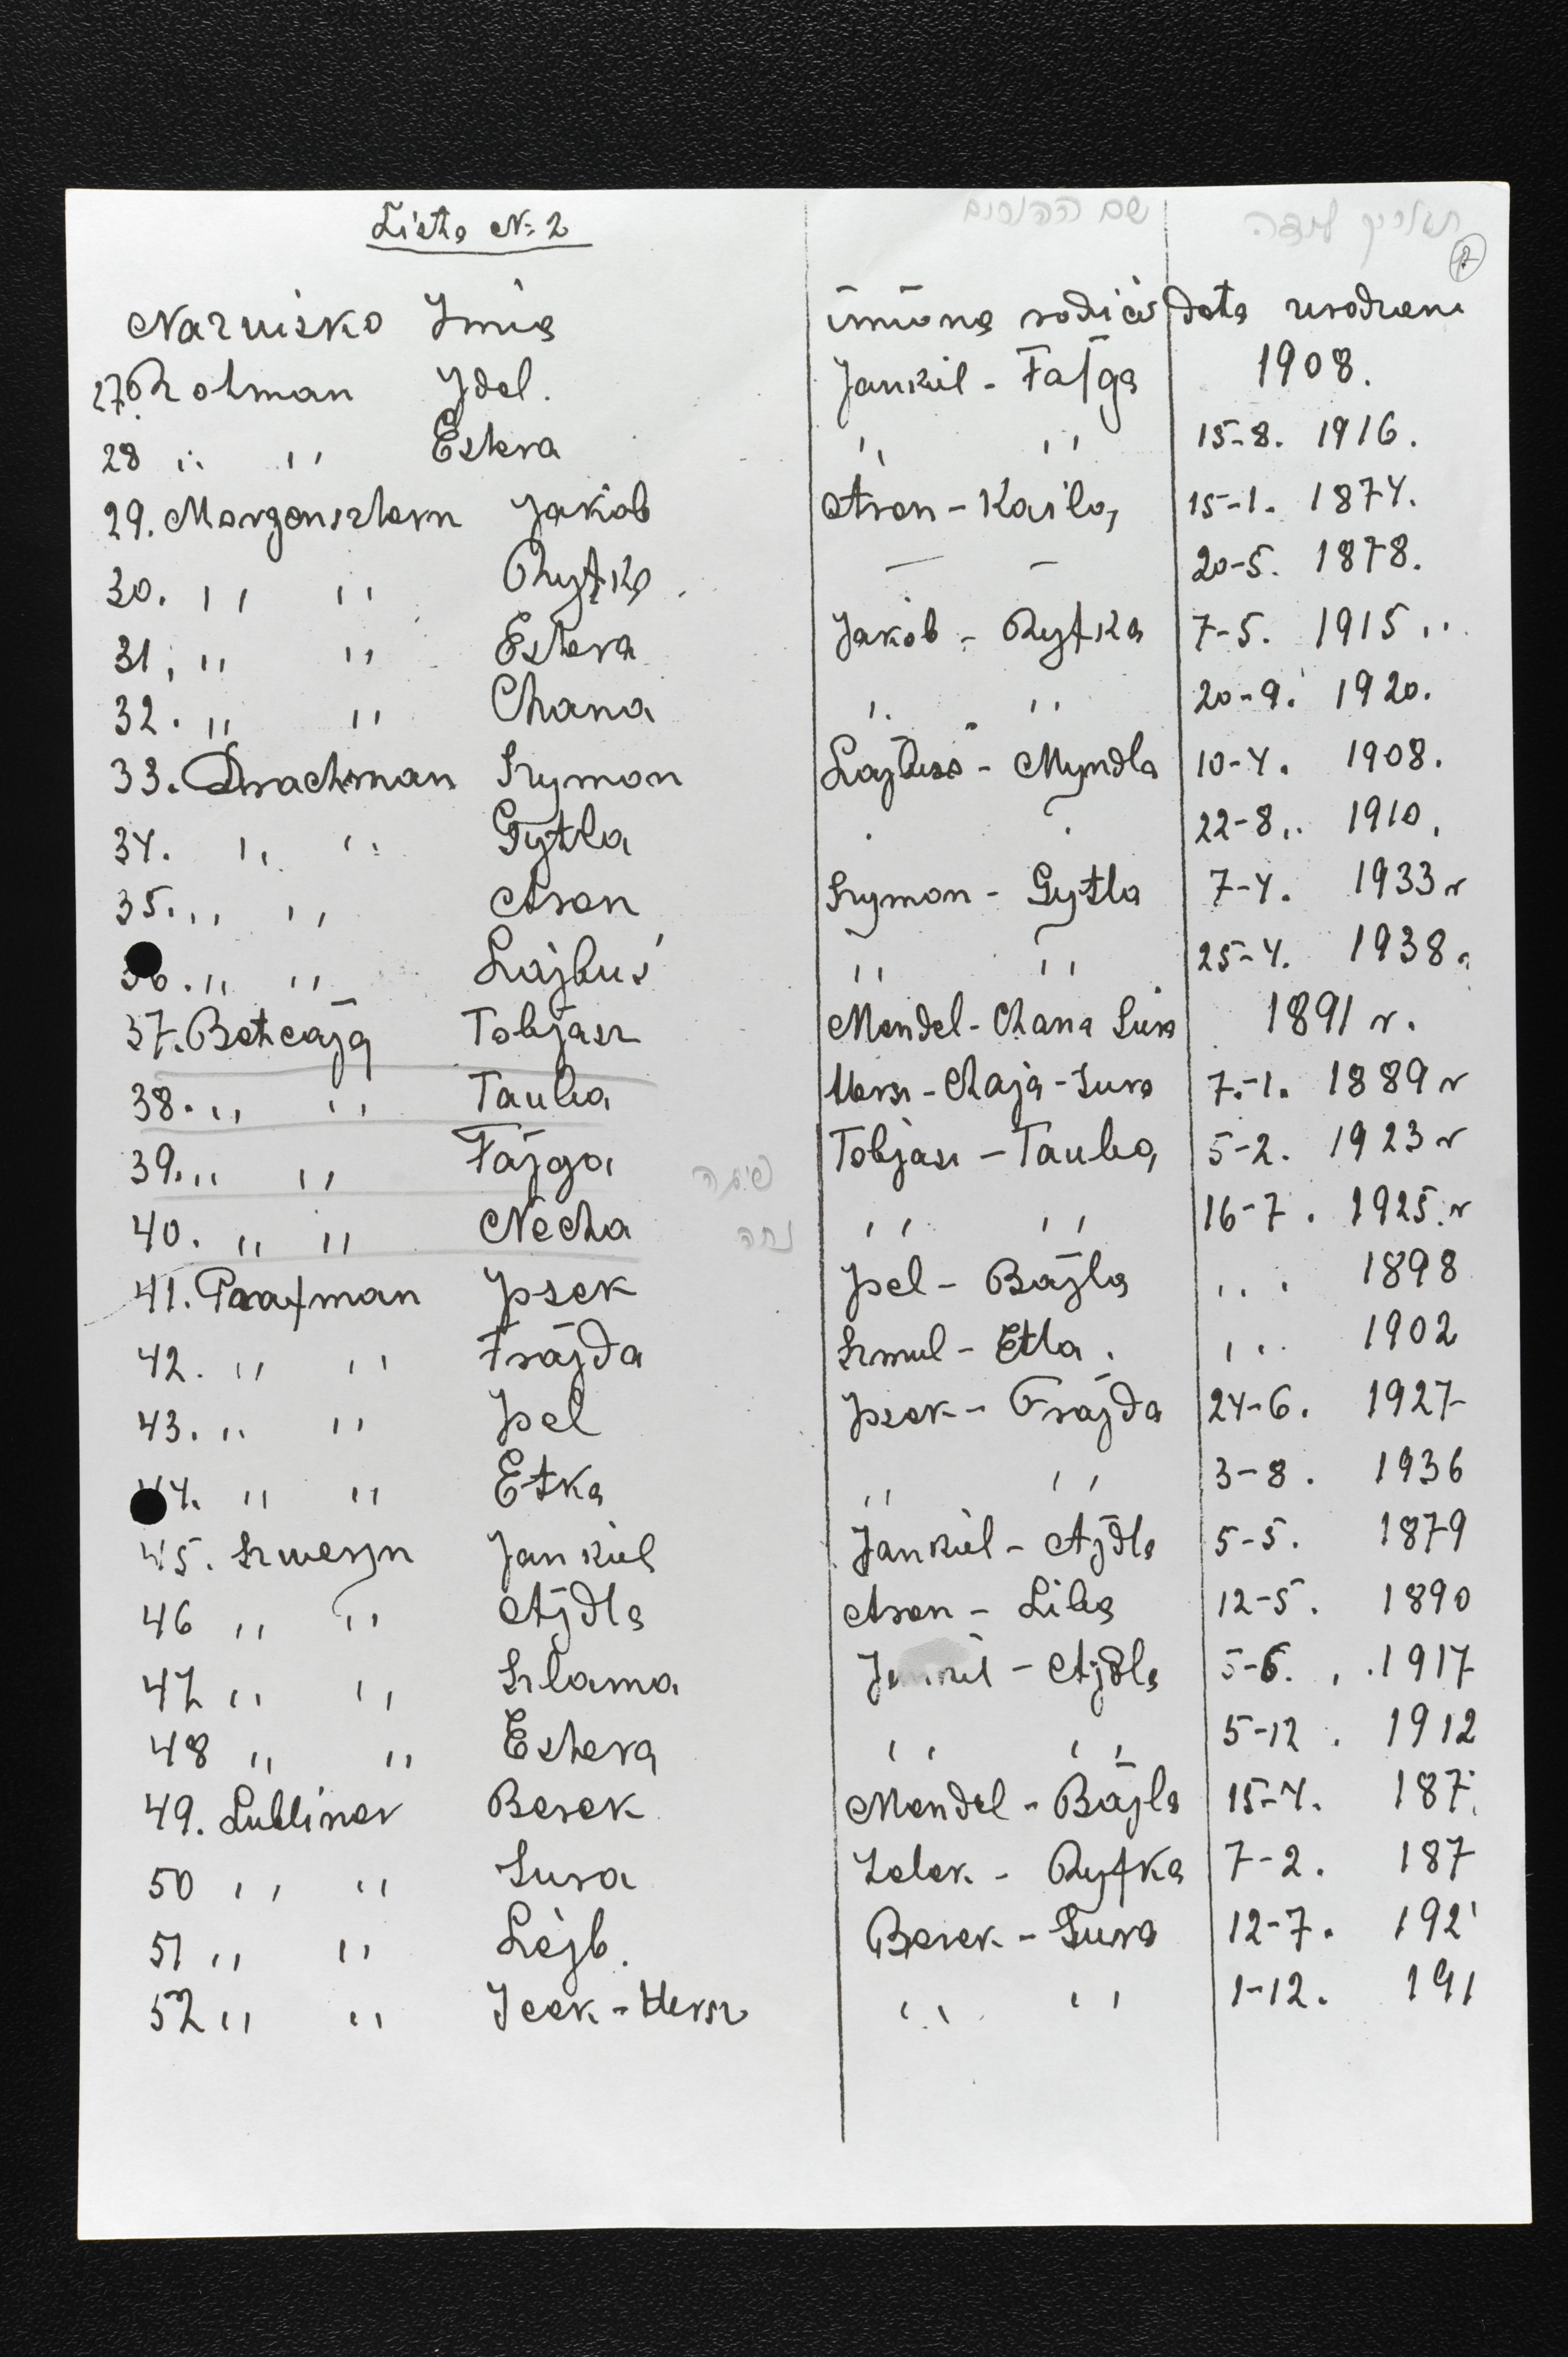 Lista №: 2
שם ההורים
תאריך לידה
Nazwisko Imie imiona rodicó data urodzeni
27. Rotman Idel. Jankiel - Fajga 1908.
28 ,, ,, Estera ,, ,, 15-8. 1916.
29. Morgensztern Jakób Aron - Kajla, 15-1. 1874.
30. ,, ,, Ryfka. — — 20-5. 1878.
31. ,, ,, Estera Jakób - Ryfka 7-5. 1915 ,,
32. ,, ,, Chana ,, ,, 20-9. 1920.
33. Drachman Szymon Lajbuś - Myndla 10-4. 1908.
34. ,, ,, Gytla 22-8. 1910.
35. ,, ,, Aron Szymon - Gytla 7-4. 1933 r
36. ,, ,, Lajbuś ,, ,, 25-4. 1938.
37. Botcajg Tobjasz Mendel - Chana Sura 1891 r.
38. ,, ,, Tauba Hersz - Chaja - Sura 7-1. 1889 r
39. ,, ,, Fajga Tobjasz - Tauba, 5-2. 1923 r
40. ,, ,, Necha נחה ,, ,, 16-7. 1925. r
41. Prafman Josek Joel - Bajla ,, . 1898
42. ,, ,, Frajda Szmul - Etla. ,, . 1902
43. ,, ,, Joel Josek - Frajda 24-6. 1927
44. ,, ,, Etka ,, ,, 3-8. 1936
45. Szwersn Jankiel Jankiel - Ajdla 5-5. 1879
46 ,, ,, Ajdla Aron - Liba 12-5. 1890
47 ,, ,, Szlama Jankiel - Ajdla 5-6. 1917
48 ,, ,, Estera ,, ,, 5-12. 1912
49. Lubliner Berek Mendel - Bajla 15-4. 187
50 ,, ,, Sura Zelek - Ryfka 7-2. 187
51 ,, ,, Lejb. Berek - Sura 12-7. 192
52 ,, ,, Icek - Hersz ,, ,, 1-12. 191